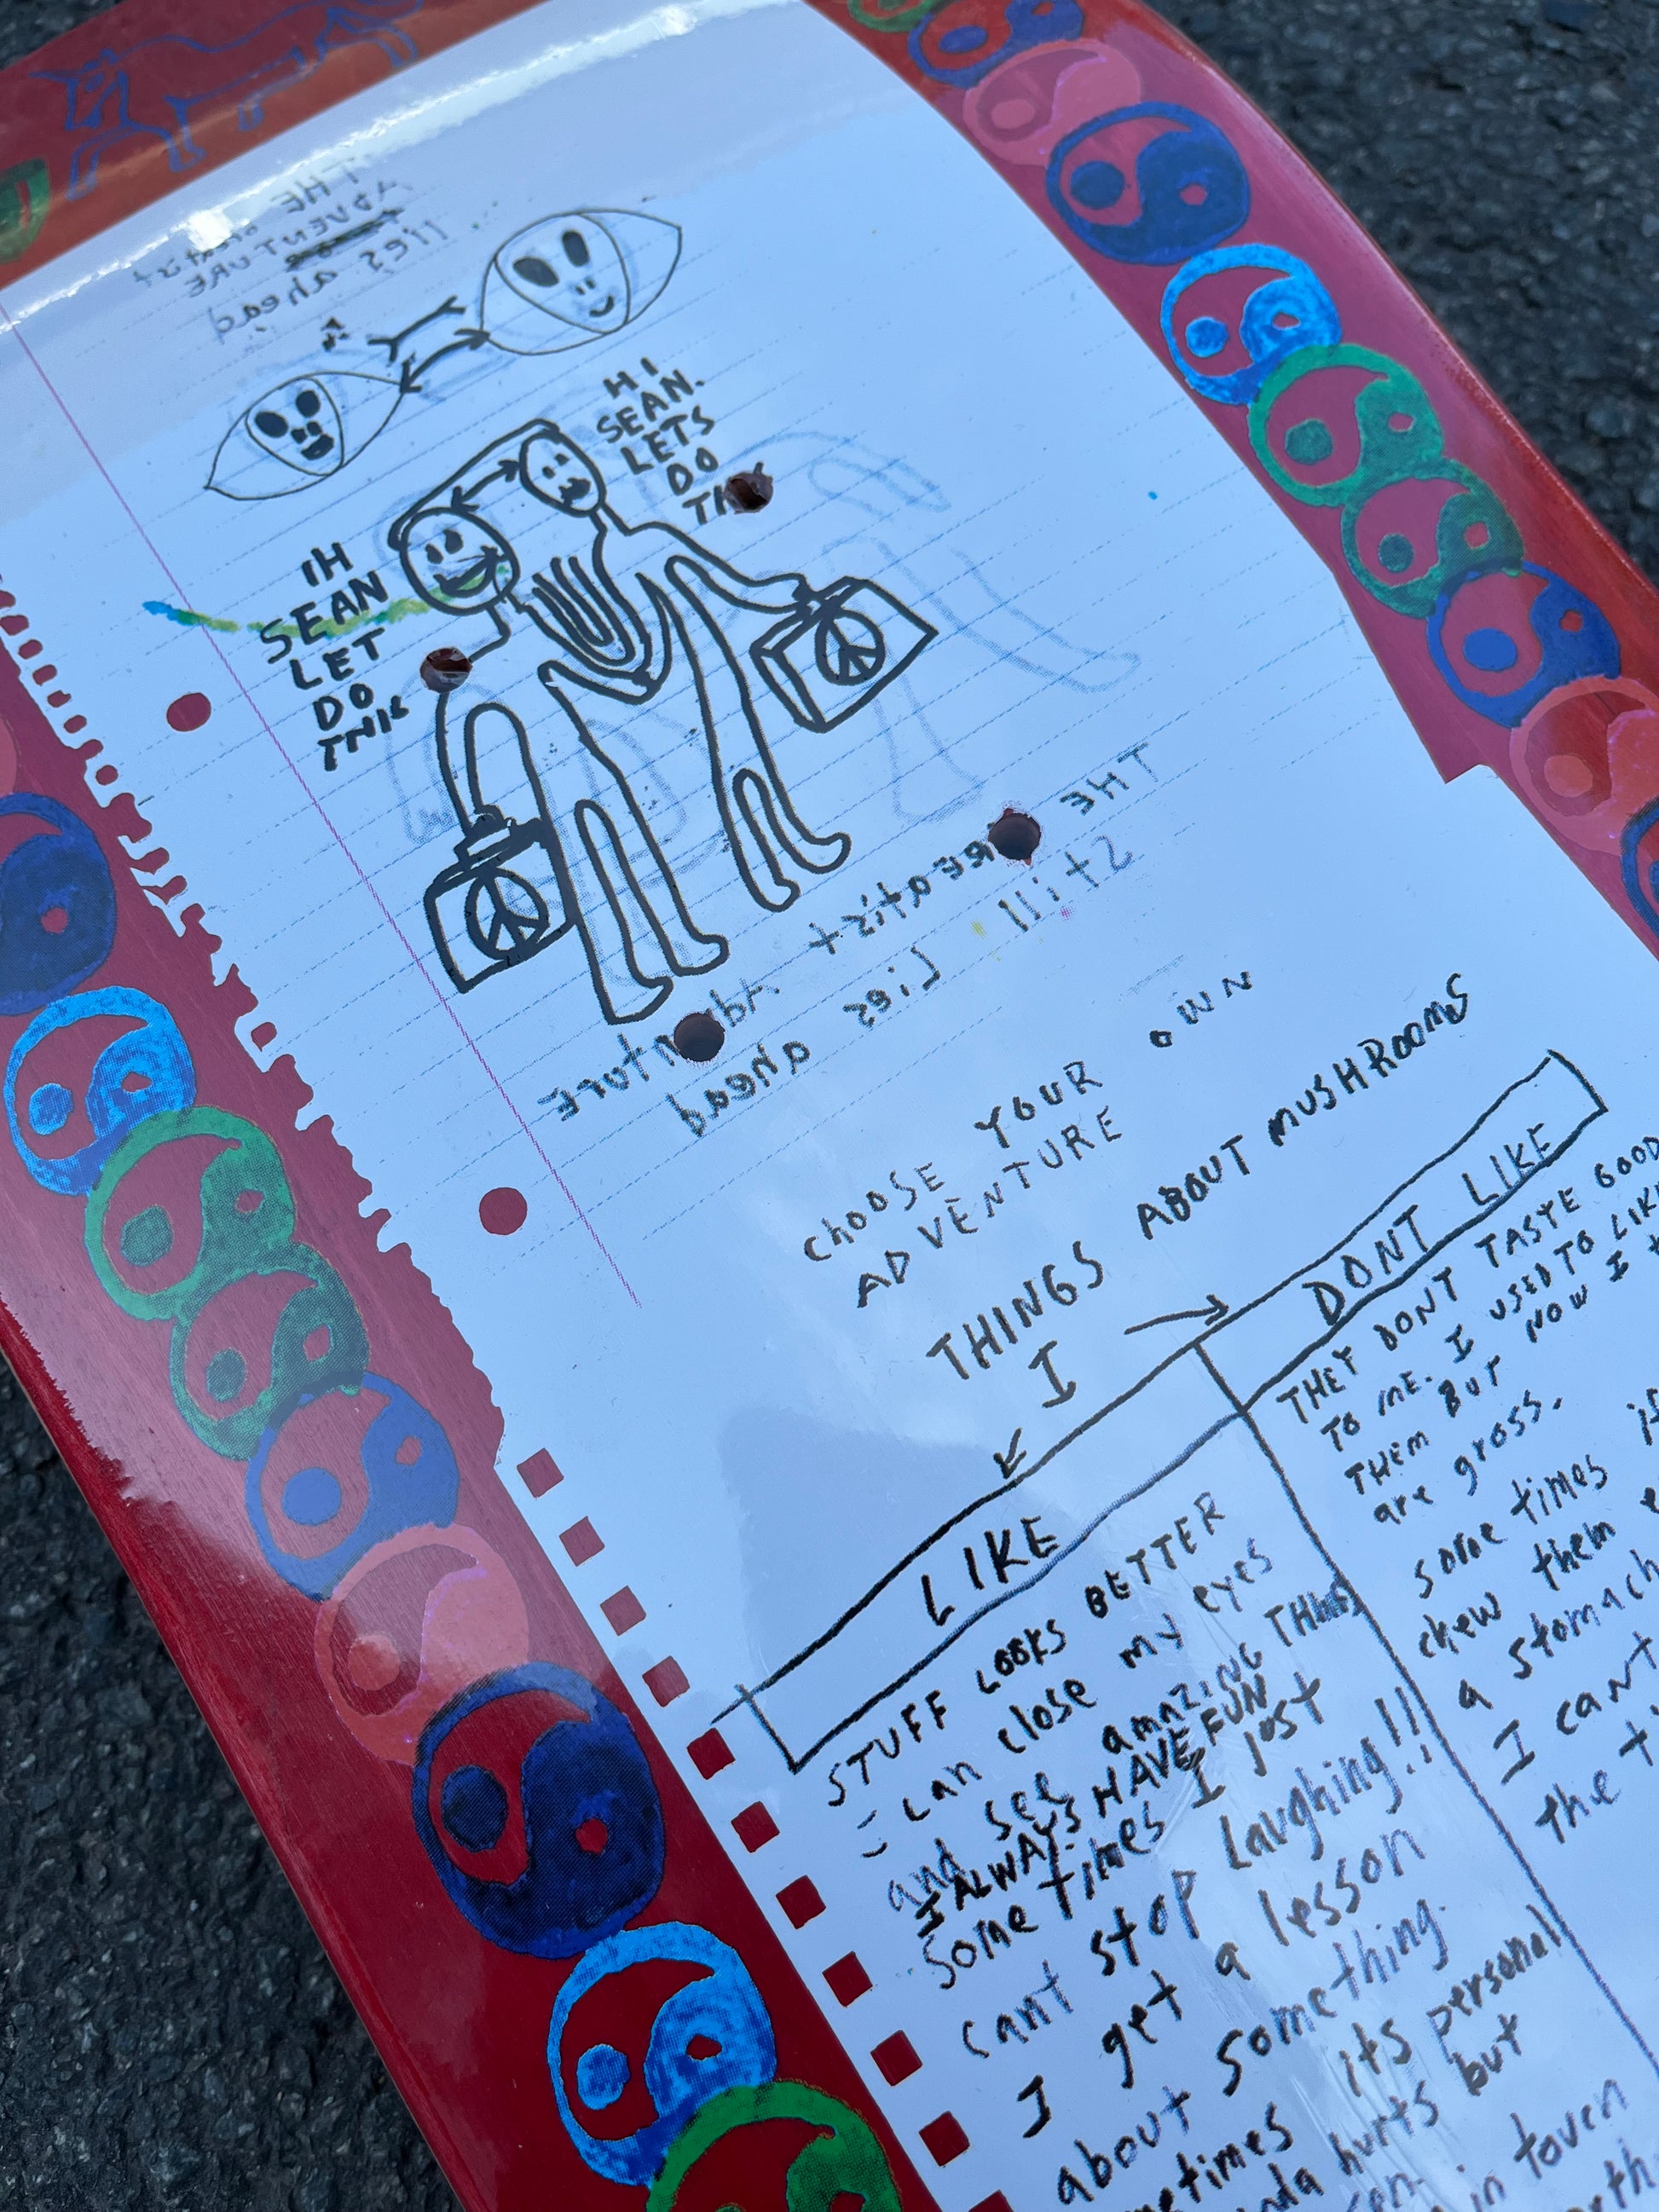 THE
greatist
ADVENTURE
lies ahead
HI
SEAN.
LETS
DO
IH
SEAN
LET
DO
THIS
THE greatist
ADVENTURE
Still Lies ahead
CHOOSE YOUR OWN
ADVENTURE
THINGS ABOUT MUSHROOMS
I
LIKE
STUFF LOOKS BETTER
I can close my eyes
and see amazing THINGS
I ALWAYS HAVE FUN
Some times I just
cant stop laughing!!
I get a lesson
about something.
its personal
hurts but
in toven
DONT LIKE
THEY DONT TASTE GOOD
TO ME. I USED TO LIKE
THEM BUT NOW I
are gross.
some times
chew them
a stomach
I cant
the